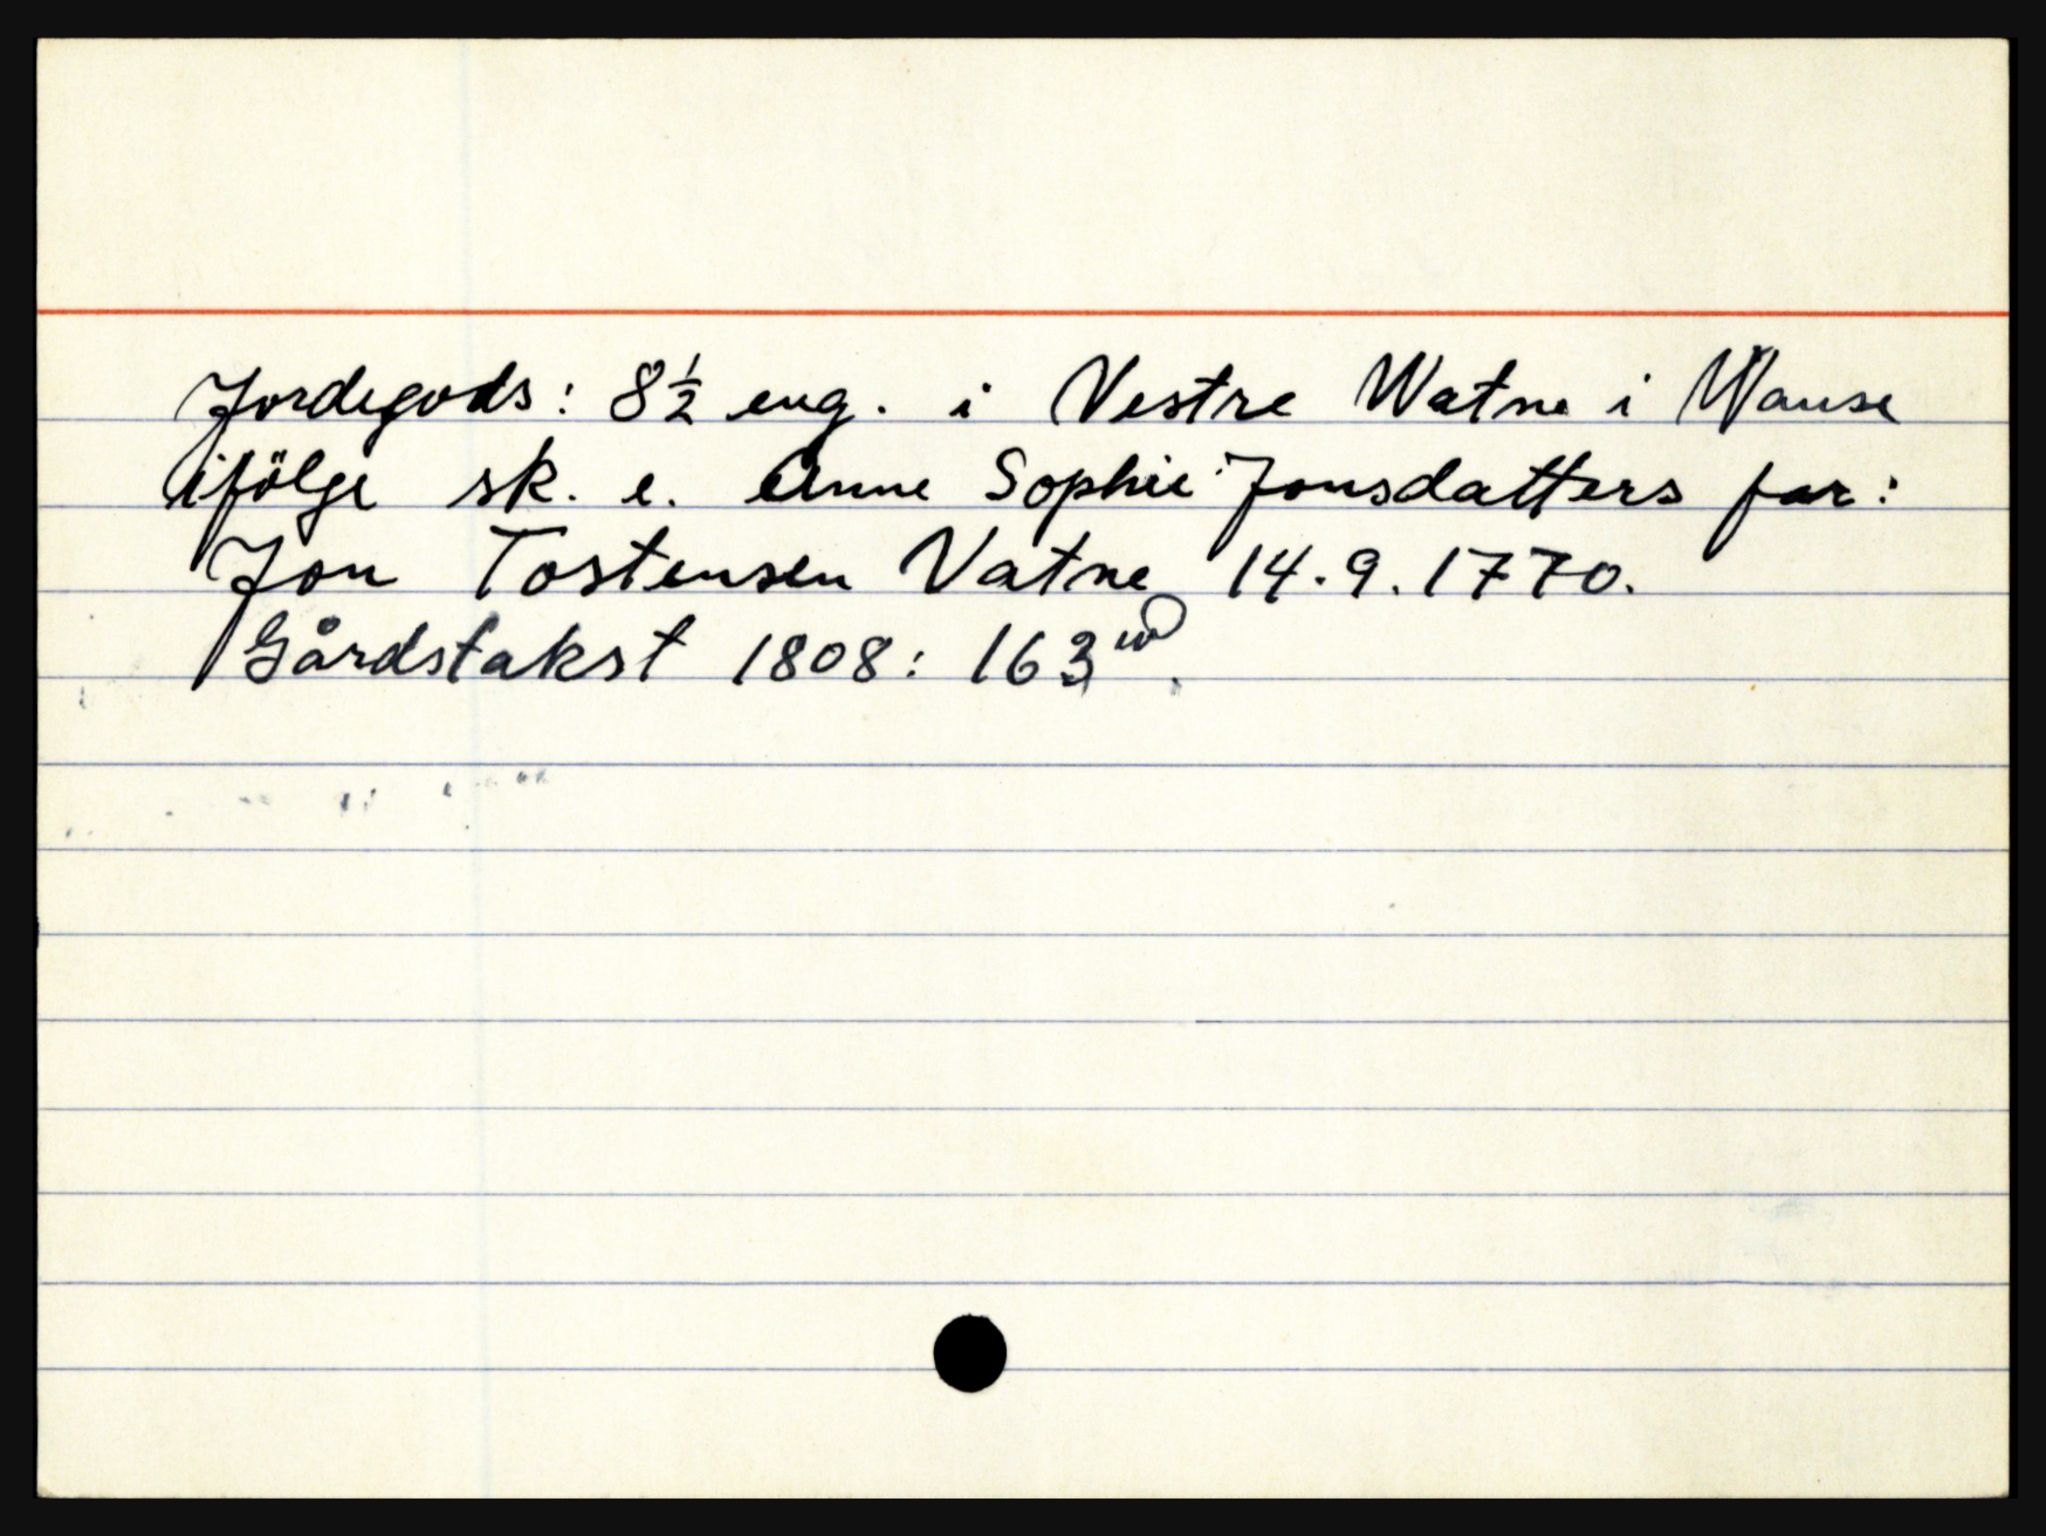 Jordegods: 8½ eng. i Vestre Watne i Wanse
ifölge sk. e. Anne Sophie Jonsdatters far:
Jon Tostensen Vatne 14.9.1770.
Gårdstakst 1808: 163